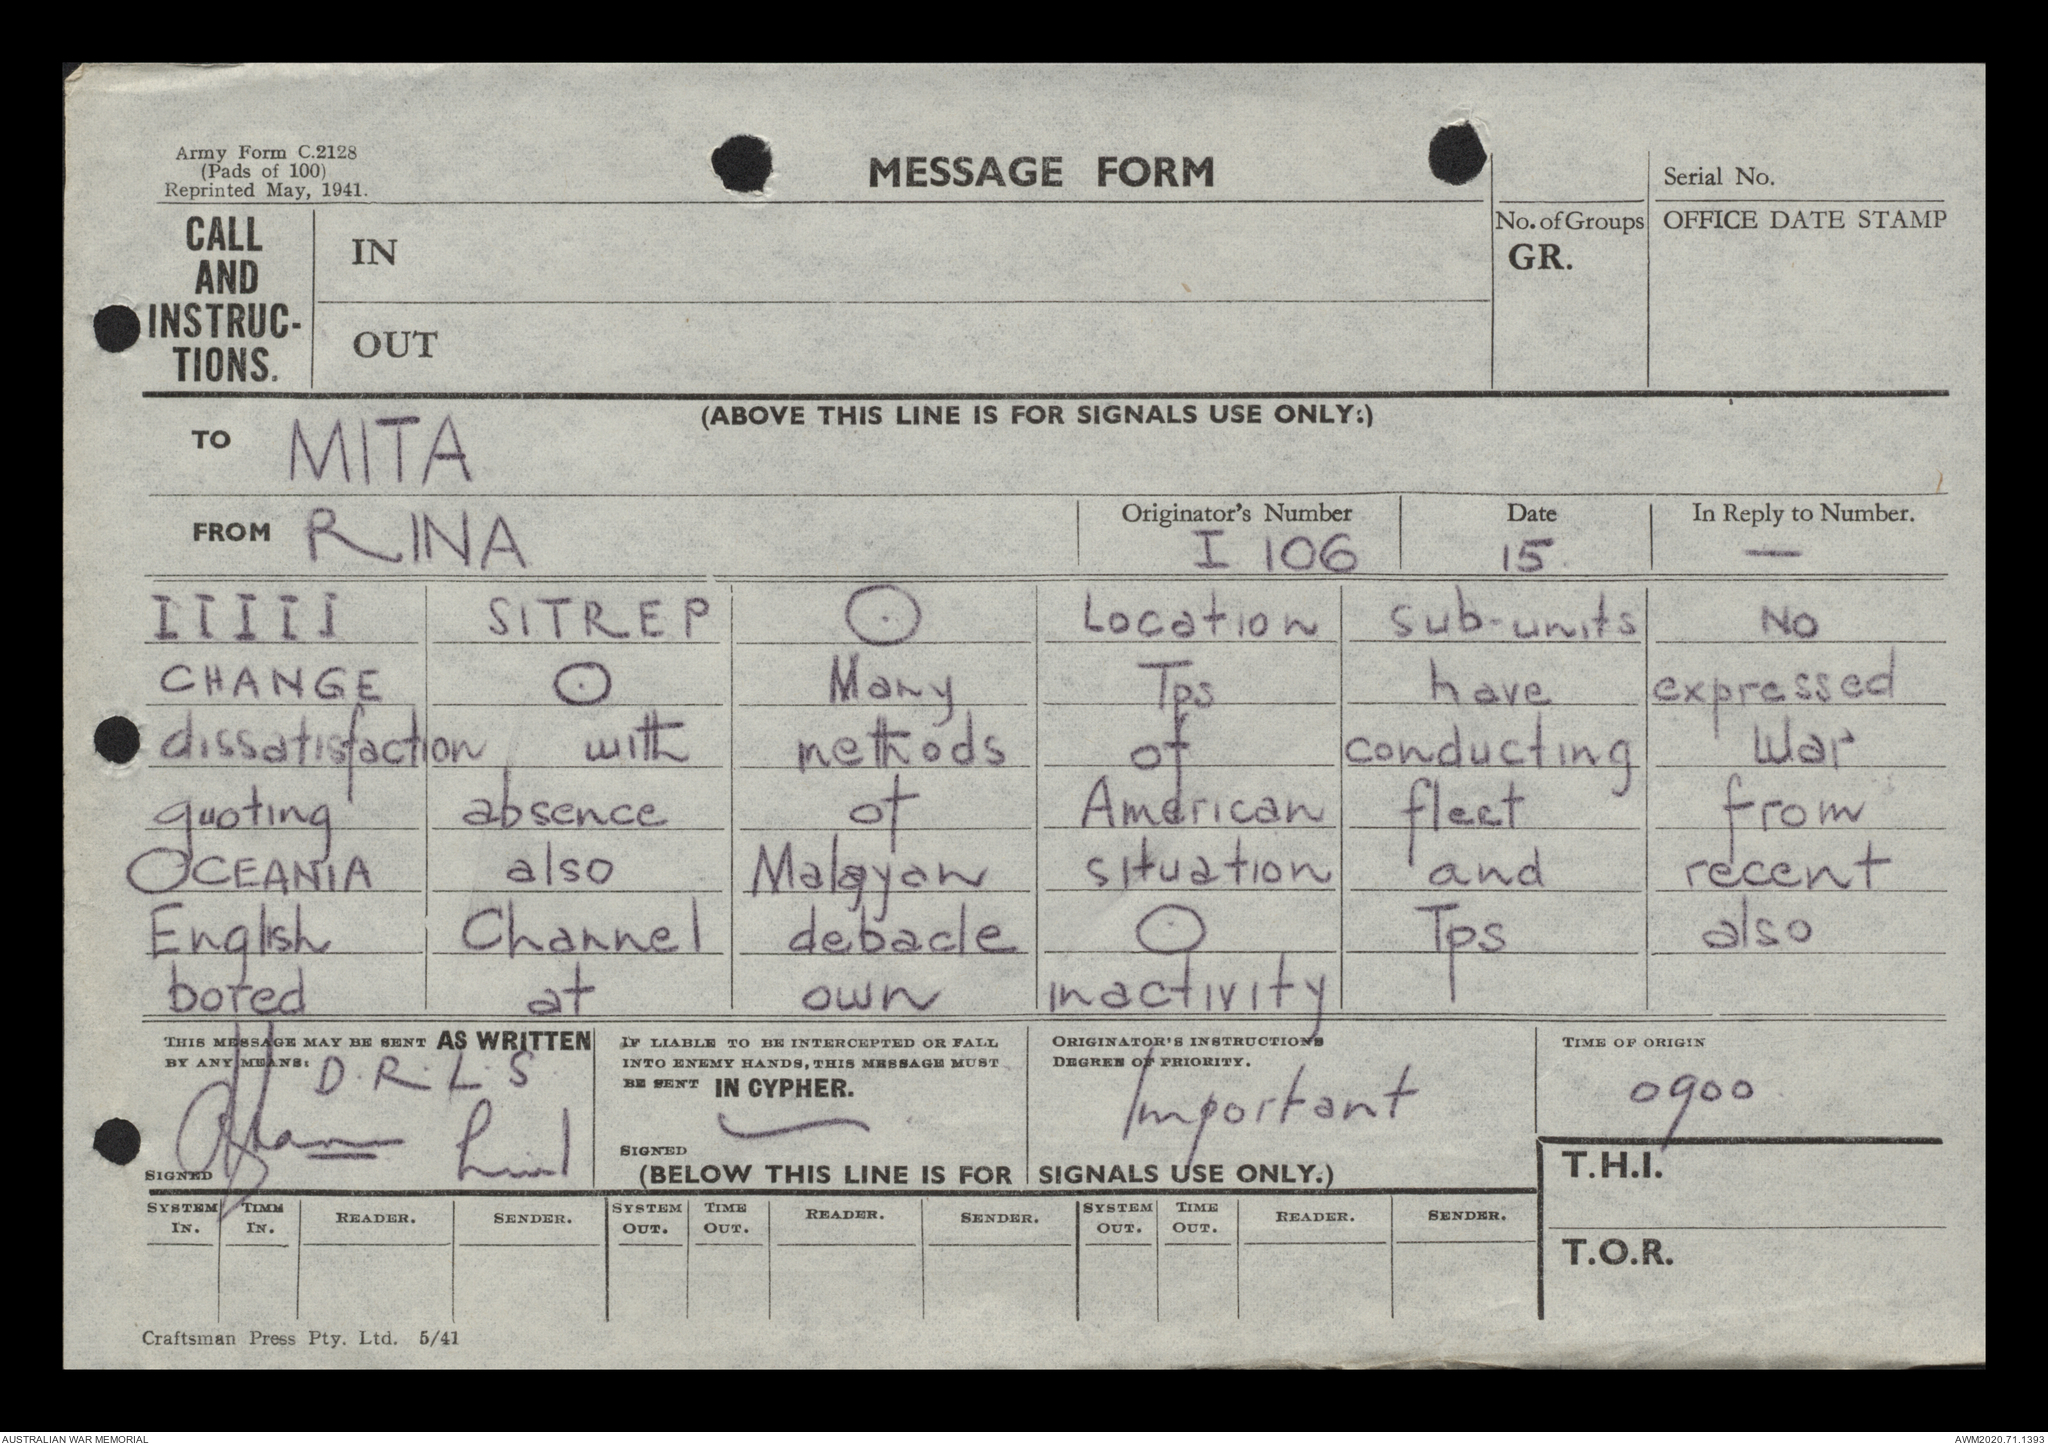 Army Form C.2128
(Pads of 100)
Reprinted May, 1941.
MESSAGE FORM
Serial No.
CALL
AND
INSTRUC-
TIONS.
IN
OUT
No. of Groups
GR.
OFFICE DATE STAMP
(ABOVE THIS LINE IS FOR SIGNALS USE ONLY.)
TO MITA
FROM RINA
Originator's Number
I 106
Date
15.
In Reply to Number.
—
IIIII SITREP ⊙ Location sub-units NO
CHANGE ⊙ Many Tps have expressed
dissatisfaction with methods of conducting War
quoting absence of American fleet from
OCEANIA also Malayan situation and recent
English Channel debacle ⊙ Tps also
bored at own inactivity
THIS MESSAGE MAY BE SENT AS WRITTEN
BY ANY MEANS:
D.R.L.S.
SIGNED
IF LIABLE TO BE INTERCEPTED OR FALL
INTO ENEMY HANDS, THIS MESSAGE MUST
BE SENT IN CYPHER.
SIGNED
ORIGINATOR'S INSTRUCTIONS
DEGREE OF PRIORITY.
Important
TIME OF ORIGIN
0900
(BELOW THIS LINE IS FOR SIGNALS USE ONLY.)
T.H.I.
T.O.R.
SYSTEM IN. TIME IN. READER. SENDER. SYSTEM OUT. TIME OUT. READER. SENDER. SYSTEM OUT. TIME OUT. READER. SENDER.
Craftsman Press Pty. Ltd. 5/41
AUSTRALIAN WAR MEMORIAL
AWM2020.71.1393